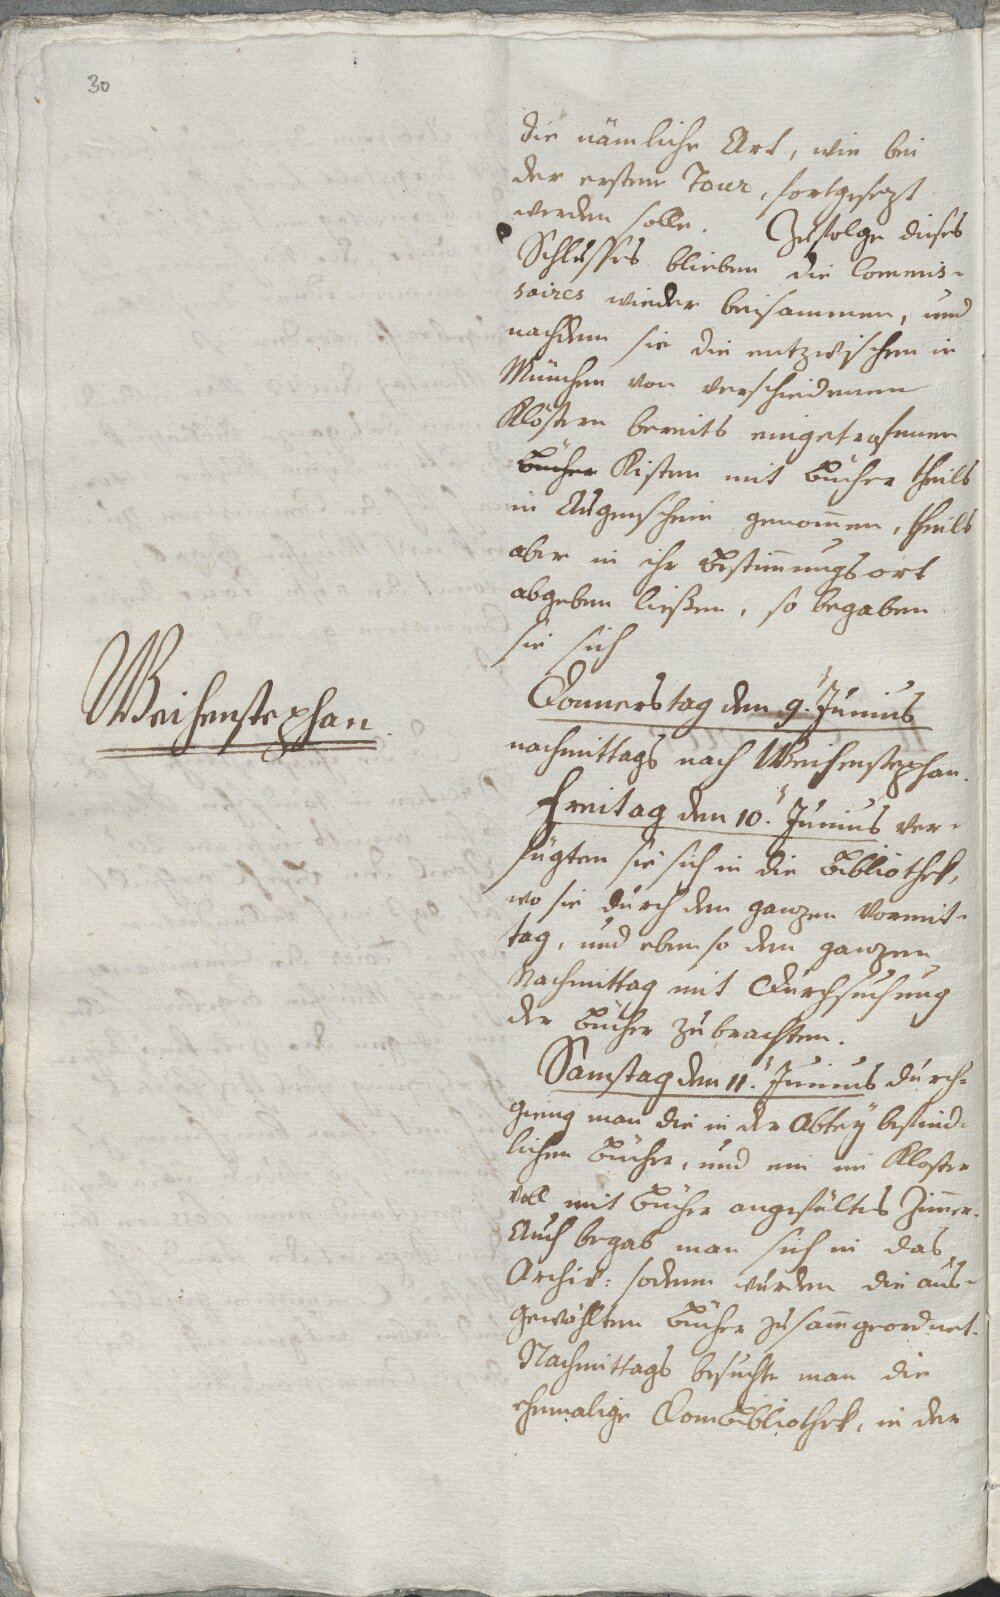 30
die nämliche Art, wie bei
der ersten Tour, fortgesezt
werden solle. Zufolge dieses
Schlusses blieben die Commis-
saires wieder beisammen, und
nachdem sie die entzwischen in
München von verschiedenen
Klöstern bereits eingetrofenen
Bücher Kisten mit Bücher theils
in Augenschein genom̄en, theils
aber in ihr Bestim̄ungsort
abgeben ließen, so begaben
sie sich
Weihenstephan.
Donnerstag den 9. Junius
nachmittags nach Weihenstephan.
Freitag den 10. Junius ver-
fügten sie sich in die Bibliothek,
wo sie durch den ganzen Vormit-
tag, und eben so den ganzen
Nachmittag mit Durchsuchung
der Bücher zubrachten.
Samstag den 11. Junius durch-
gieng man die in der Abtey befind-
lichen Bücher, und ein im Kloster
voll mit Bücher angefültes Zim̄er.
Auch begab man sich in das
Archiv: sodenn wurden die aus-
gewählten Bücher zusam̄geordnet.
Nachmittags besuchte man die
ehemalige Dombibliothek, in der